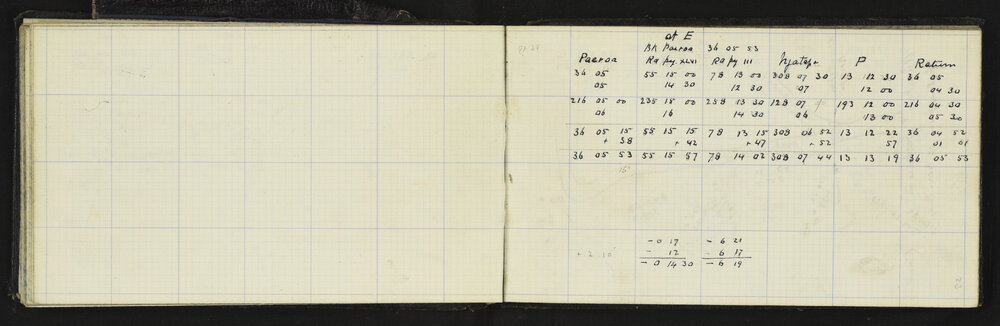 at E
BA Paeroa 36 05 53
Paeroa Rapy XLVI Rapy III Ngatepe P Return
36 05 55 15 00 78 13 00 308 07 30 13 12 30 36 05
05 14 30 12 30 07 12 00 04 30
216 05 00 235 15 00 258 13 30 128 07 193 12 00 216 04 30
06 16 14 30 06 13 00 05 30
36 05 15 55 15 15 78 13 15 308 06 52 13 12 22 36 04 52
+ 38 + 42 + 47 + 52 57 01 01
36 05 53 55 15 57 78 14 02 308 07 44 13 13 19 36 05 53
15
- 0 17 - 6 21
- 12 - 6 17
+ 2 10 - 0 14 30 - 6 19